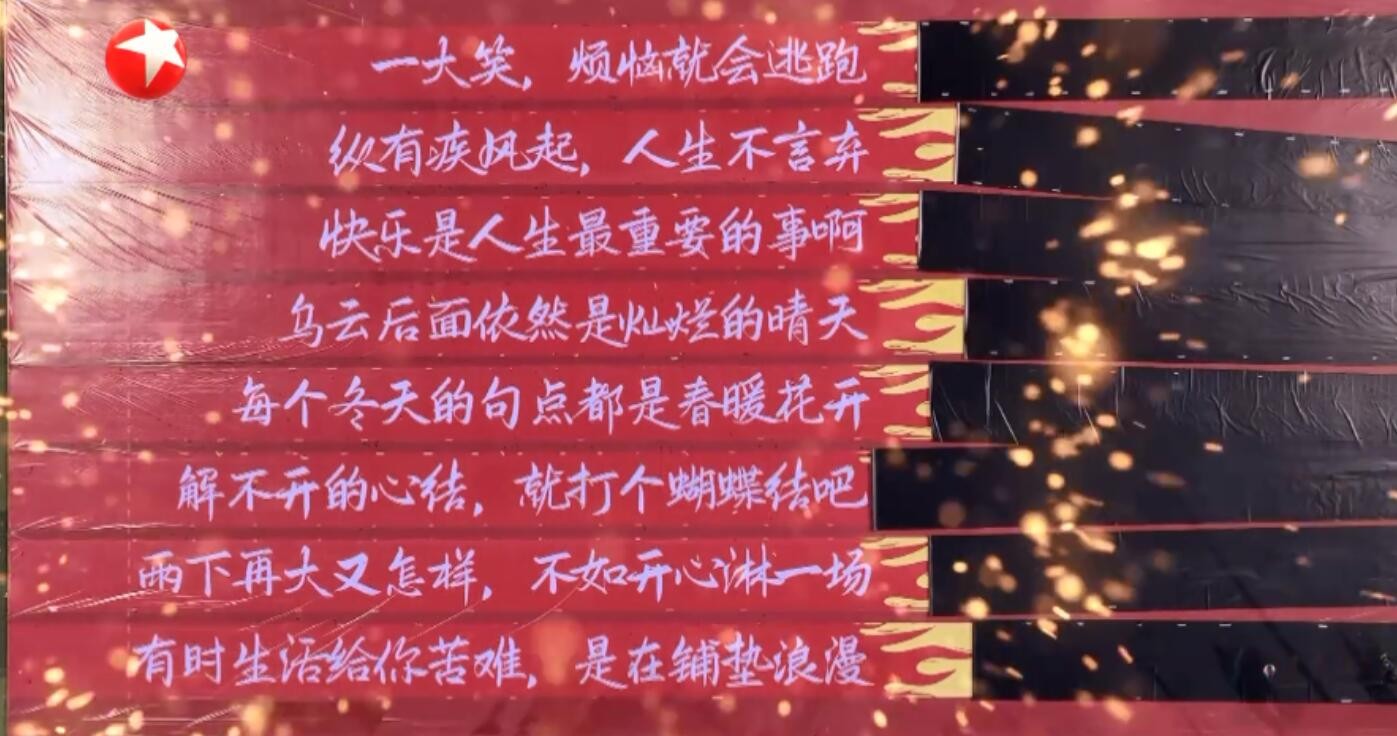 一大笑，烦恼就会逃跑
纵有疾风起，人生不言弃
快乐是人生最重要的事啊
乌云后面依然是灿烂的晴天
每个冬天的句点都是春暖花开
解不开的心结，就打个蝴蝶结吧
雨下再大又怎样，不如开心淋一场
有时生活给你苦难，是在铺垫浪漫